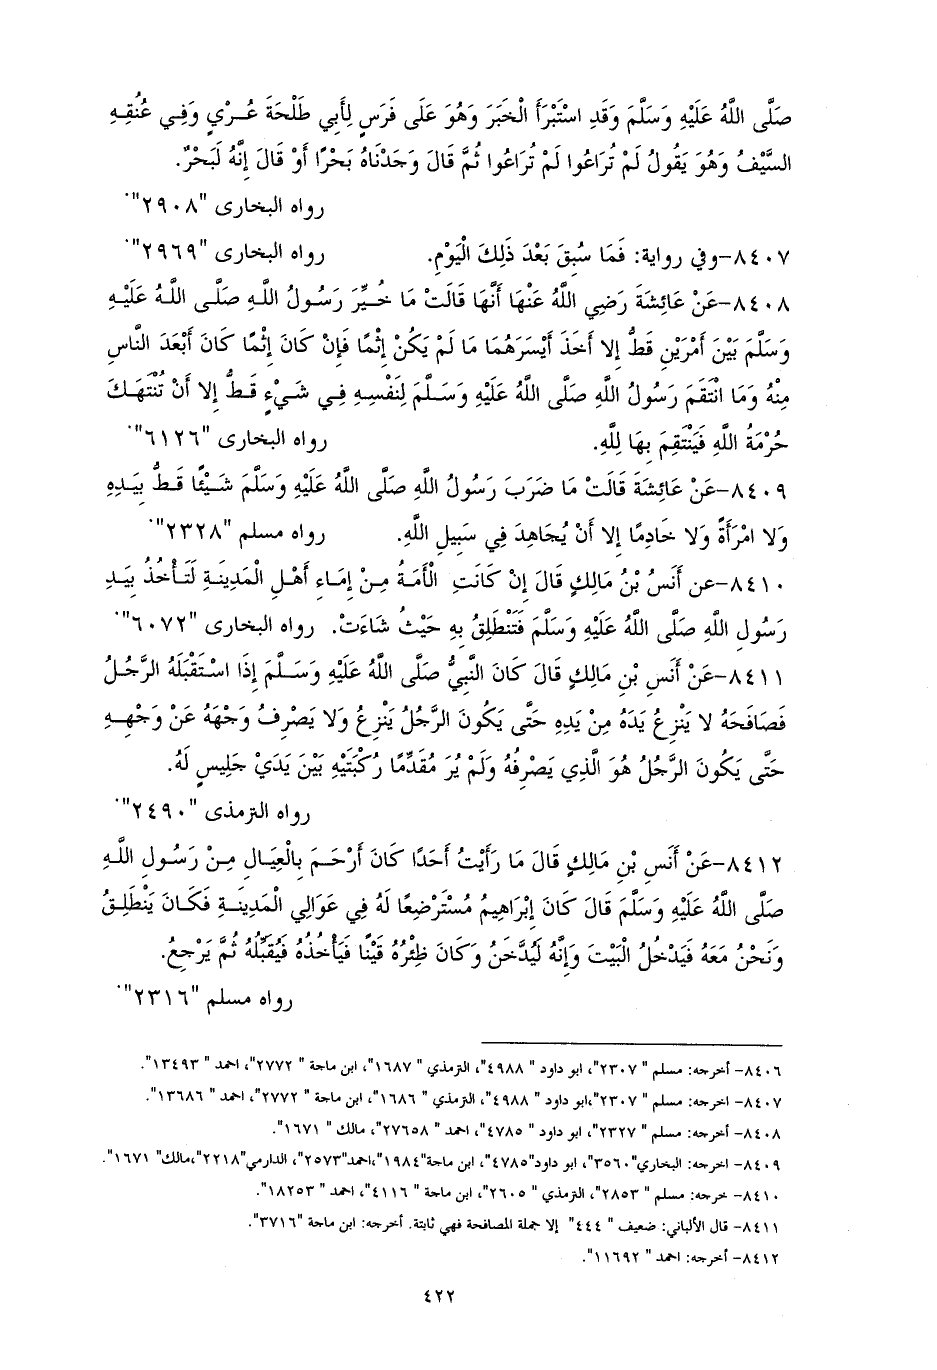 صَلَّى اللَّهُ عَلَيْهِ وَسَلَّمَ وَقَدِ اسْتَبْرَأَ الْخَبَرَ وَهُوَ عَلَى فَرَسٍ لِأَبِي طَلْحَةَ عُرْيٍ وَفِي عُنُقِهِ
السَّيْفُ وَهُوَ يَقُولُ لَمْ تُرَاعُوا لَمْ تُرَاعُوا ثُمَّ قَالَ وَجَدْنَاهُ بَحْرًا أَوْ قَالَ إِنَّهُ لَبَحْرٌ.
رواه البخارى "٢٩٠٨".
٨٤٠٧-وفي رواية: فَمَا سُبِقَ بَعْدَ ذَلِكَ الْيَوْمِ. رواه البخارى "٢٩٦٩".
٨٤٠٨-عَنْ عَائِشَةَ رَضِي اللَّهُ عَنْهَا أَنَّهَا قَالَتْ مَا خُيِّرَ رَسُولُ اللَّهِ صَلَّى اللَّهُ عَلَيْهِ
وَسَلَّمَ بَيْنَ أَمْرَيْنِ قَطُّ إِلا أَخَذَ أَيْسَرَهُمَا مَا لَمْ يَكُنْ إِثْمًا فَإِنْ كَانَ إِثْمًا كَانَ أَبْعَدَ النَّاسِ
مِنْهُ وَمَا انْتَقَمَ رَسُولُ اللَّهِ صَلَّى اللَّهُ عَلَيْهِ وَسَلَّمَ لِنَفْسِهِ فِي شَيْءٍ قَطُّ إِلا أَنْ تُنْتَهَكَ
حُرْمَةُ اللَّهِ فَيَنْتَقِمَ بِهَا لِلَّهِ. رواه البخارى "٦١٢٦".
٨٤٠٩-عَنْ عَائِشَةَ قَالَتْ مَا ضَرَبَ رَسُولُ اللَّهِ صَلَّى اللَّهُ عَلَيْهِ وَسَلَّمَ شَيْئًا قَطُّ بِيَدِهِ
وَلا امْرَأَةً وَلا خَادِمًا إِلا أَنْ يُجَاهِدَ فِي سَبِيلِ اللَّهِ. رواه مسلم "٢٣٢٨".
٨٤١٠-عن أَنَسُ بْنُ مَالِكٍ قَالَ إِنْ كَانَتِ الْأَمَةُ مِنْ إِمَاءِ أَهْلِ الْمَدِينَةِ لَتَأْخُذُ بِيَدِ
رَسُولِ اللَّهِ صَلَّى اللَّهُ عَلَيْهِ وَسَلَّمَ فَتَنْطَلِقُ بِهِ حَيْثُ شَاءَتْ. رواه البخارى "٦٠٧٢".
٨٤١١-عَنْ أَنَسِ بْنِ مَالِكٍ قَالَ كَانَ النَّبِيُّ صَلَّى اللَّهُ عَلَيْهِ وَسَلَّمَ إِذَا اسْتَقْبَلَهُ الرَّجُلُ
فَصَافَحَهُ لا يَنْزِعُ يَدَهُ مِنْ يَدِهِ حَتَّى يَكُونَ الرَّجُلُ يَنْزِعُ وَلا يَصْرِفُ وَجْهَهُ عَنْ وَجْهِهِ
حَتَّى يَكُونَ الرَّجُلُ هُوَ الَّذِي يَصْرِفُهُ وَلَمْ يُرَ مُقَدِّمًا رُكْبَتَيْهِ بَيْنَ يَدَيْ جَلِيسٍ لَهُ.
رواه الترمذى "٢٤٩٠".
٨٤١٢-عَنْ أَنَسِ بْنِ مَالِكٍ قَالَ مَا رَأَيْتُ أَحَدًا كَانَ أَرْحَمَ بِالْعِيَالِ مِنْ رَسُولِ اللَّهِ
صَلَّى اللَّهُ عَلَيْهِ وَسَلَّمَ قَالَ كَانَ إِبْرَاهِيمُ مُسْتَرْضِعًا لَهُ فِي عَوَالِي الْمَدِينَةِ فَكَانَ يَنْطَلِقُ
وَنَحْنُ مَعَهُ فَيَدْخُلُ الْبَيْتَ وَإِنَّهُ لَيُدَّخَنُ وَكَانَ ظِئْرُهُ قَيْنًا فَيَأْخُذُهُ فَيُقَبِّلُهُ ثُمَّ يَرْجِعُ.
رواه مسلم "٢٣١٦".
٨٤٠٦- أخرجه: مسلم " ٢٣٠٧"، ابو داود " ٤٩٨٨"، الترمذي " ١٦٨٧"، ابن ماجة " ٢٧٧٢"، احمد " ١٣٤٩٣".
٨٤٠٧- اخرجه: مسلم " ٢٣٠٧"،ابو داود " ٤٩٨٨"، الترمذي " ١٦٨٦"، ابن ماجة " ٢٧٧٢"، احمد " ١٣٦٨٦".
٨٤٠٨- أخرجه: مسلم " ٢٣٢٧"، ابو داود " ٤٧٨٥"، احمد " ٢٧٦٥٨"، مالك " ١٦٧١".
٨٤٠٩- اخرجه: البخاري"٣٥٦٠"، ابو داود"٤٧٨٥"، ابن ماجة"١٩٨٤"،احمد"٢٥٧٣"، الدارمي"٢٢١٨"،مالك" ١٦٧١".
٨٤١٠- خرجه: مسلم " ٢٨٥٣"، الترمذي " ٢٦٠٥"، ابن ماجة " ٤١١٦"، احمد " ١٨٢٥٣".
٨٤١١- قال الألباني: ضعيف " ٤٤٤" إلا جملة المصافحة فهي ثابتة. أخرجه: ابن ماجة "٣٧١٦".
٨٤١٢- أخرجه: احمد " ١١٦٩٢".
٤٢٢